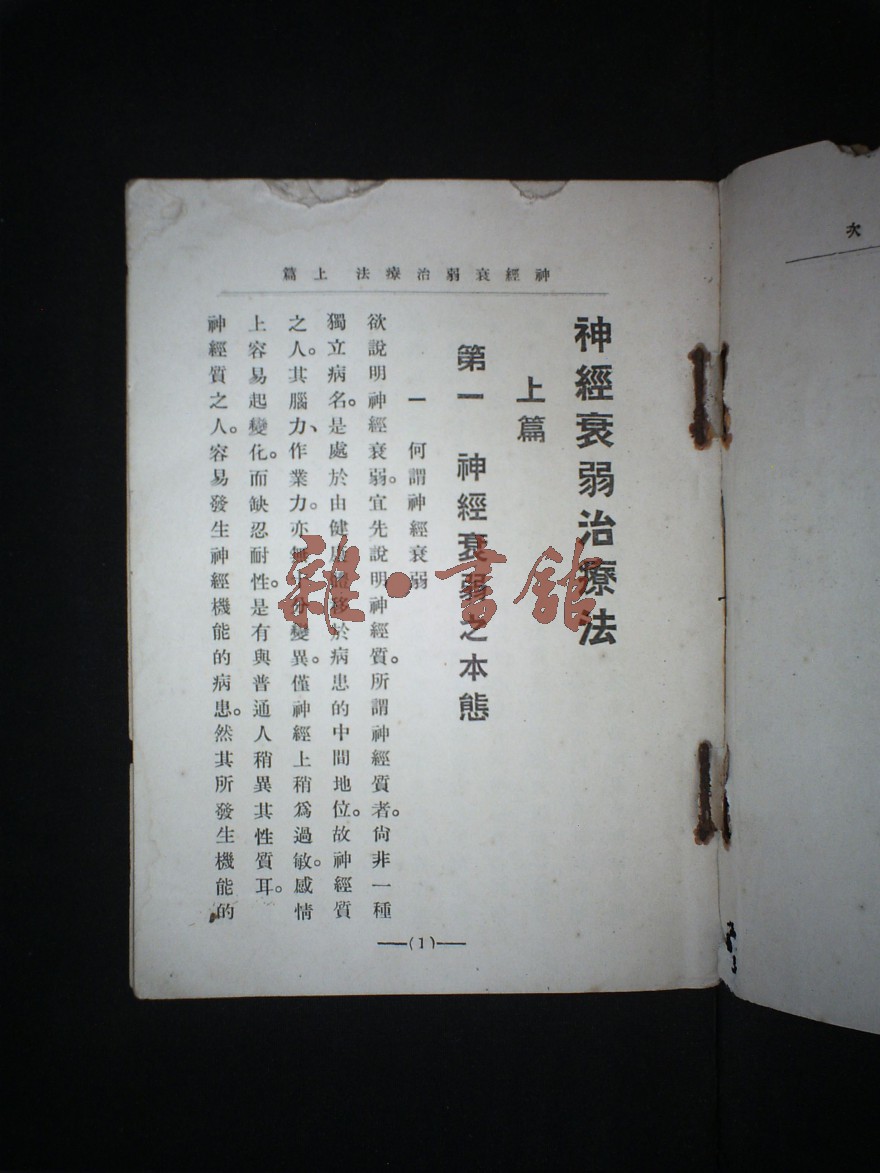 神經衰弱治療法 上篇
神經衰弱治療法
上篇
第一 神經衰弱之本態
一 何謂神經衰弱
欲說明神經衰弱。宜先說明神經質。所謂神經質者。尙非一種
獨立病名。是處於由健康體移於病患的中間地位。故神經質
之人。其腦力、作業力。亦無十分變異。僅神經上稍爲過敏。感情
上容易起變化。而缺忍耐性。是有與普通人稍異其性質耳。
神經質之人。容易發生神經機能的病患。然其所發生機能的
(1)
次
雜·書館